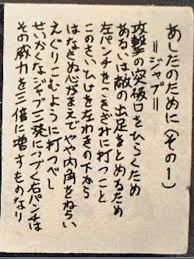 あしたのために(その1)
=ジャブ=
攻撃の突破口をひらくため
あるいは敵の出足をとめるため
左パンチをこきざみに打つこと
このさいひじを左わきの下から
はなさぬ心がまえでやや内角をねらい
えぐりこむように打つべし
せいかくなジャブ三発につづく右パンチは
その威力を三倍に増すものなり